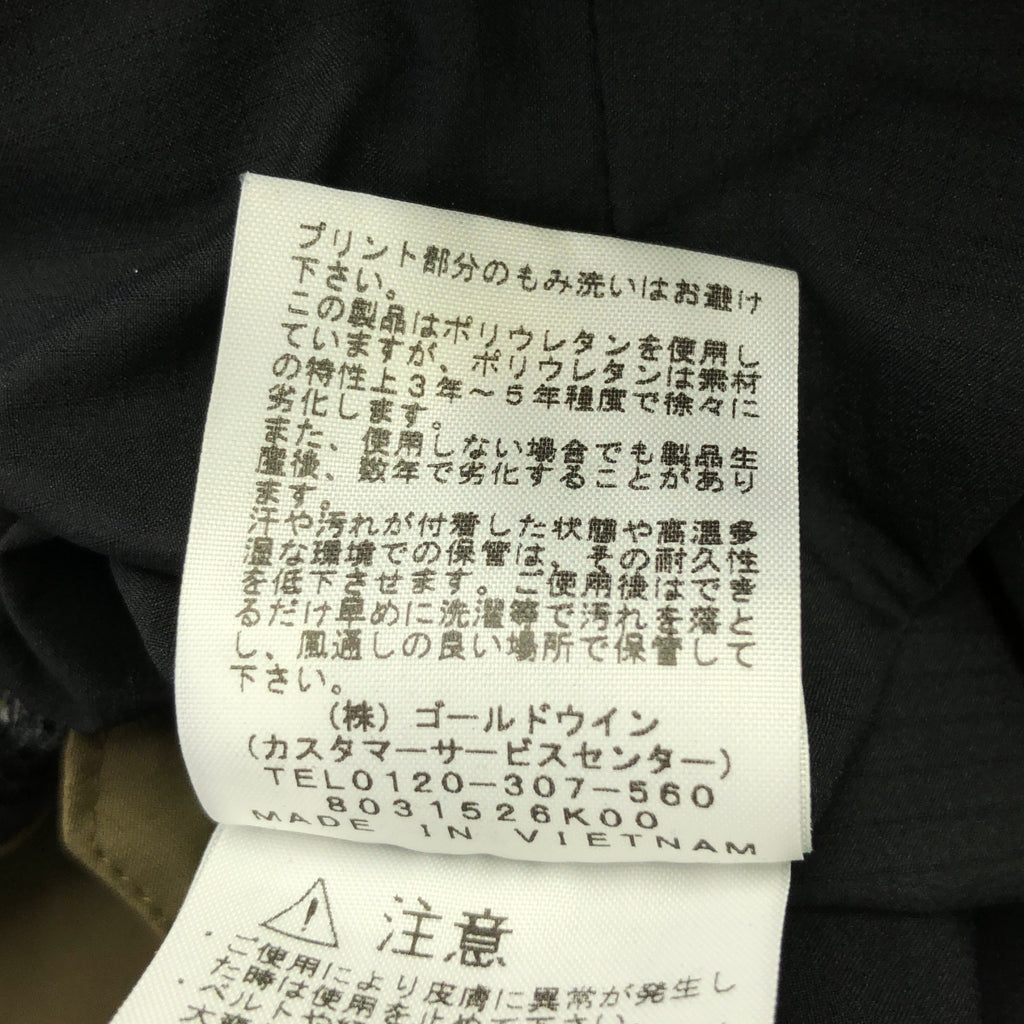 プリント部分のもみ洗いはお避け
下さい。
この製品はポリウレタンを使用し
ていますが、ポリウレタンは素材
の特性上3年～5年程度で徐々に
劣化します。
また、使用しない場合でも製品生
産後、数年で劣化することがあり
ます。
汗や汚れが付着した状態や高温多
湿な環境での保管は、その耐久性
を低下させます。ご使用後はでき
るだけ早めに洗濯等で汚れを落と
し、風通しの良い場所で保管して
下さい。
（株）ゴールドウイン
(カスタマーサービスセンター)
TEL0120-307-560
8031526K00
MADE IN VIETNAM
注意
・ご使用により皮膚に異常が発生し
た時は使用を止めて下さい。
・ベルトや